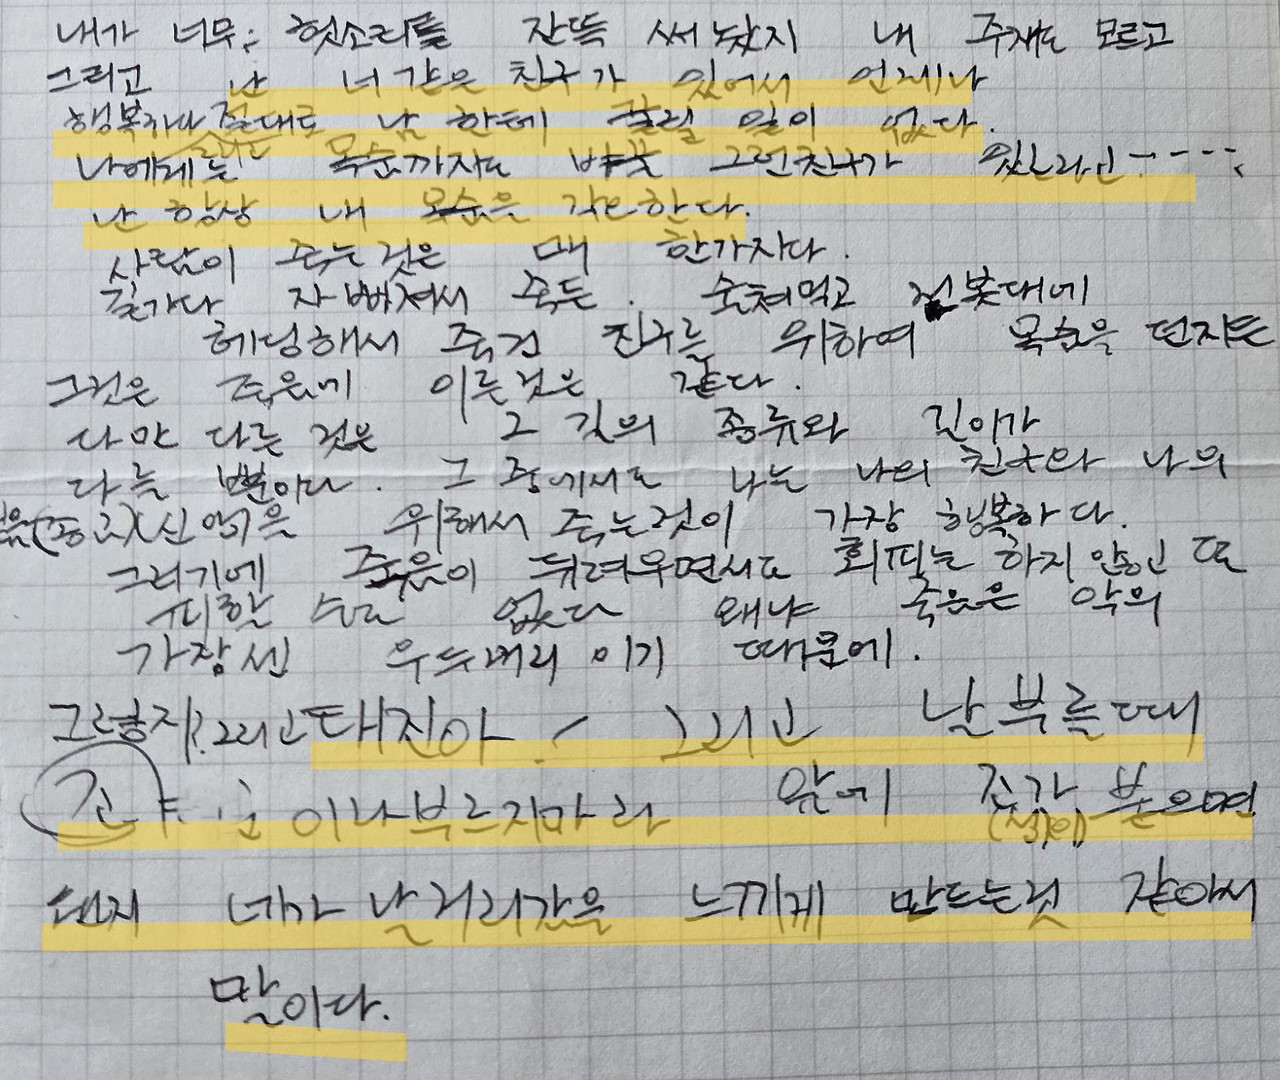 내가 너무 헛소리를 잔뜩 써 놨지 내 주제도 모르고
그리고 난 너 같은 친구가 있어서 언제나
행복하다 절대로 남 한테 꿀릴 일이 없다.
나에게는 목숨까지도 바꿀 그런친구가 있노라고 - - - -
난 항상 내 목숨을 각오한다.
사람이 죽는것은 매 한가지다.
길가다 자빠져서 죽든. 술쳐먹고 전봇대에
헤딩해서 죽건 친구를 위하여 목숨을 던지든
그것은 죽음에 이르는것은 같다.
다만 다른 것은 그 길의 종류와 길이가
다를 뿐이다. 그 중에서도 나는 나의 친구와 나의
(종교)(신앙)을 위해서 죽는것이 가장 행복하다.
그러기에 죽음이 두려우면서도 회피는 하지 않고 또
피할 수도 없다 왜냐 죽음은 악의
가장 센 우두머리 이기 때문에.
그렇지? 그리고 태진아! 그리고 날 부를때
이나 부르지마라 앞에 붙으면
웬지 네가 날 거리감을 느끼게 만드는것 같아서
말이다.